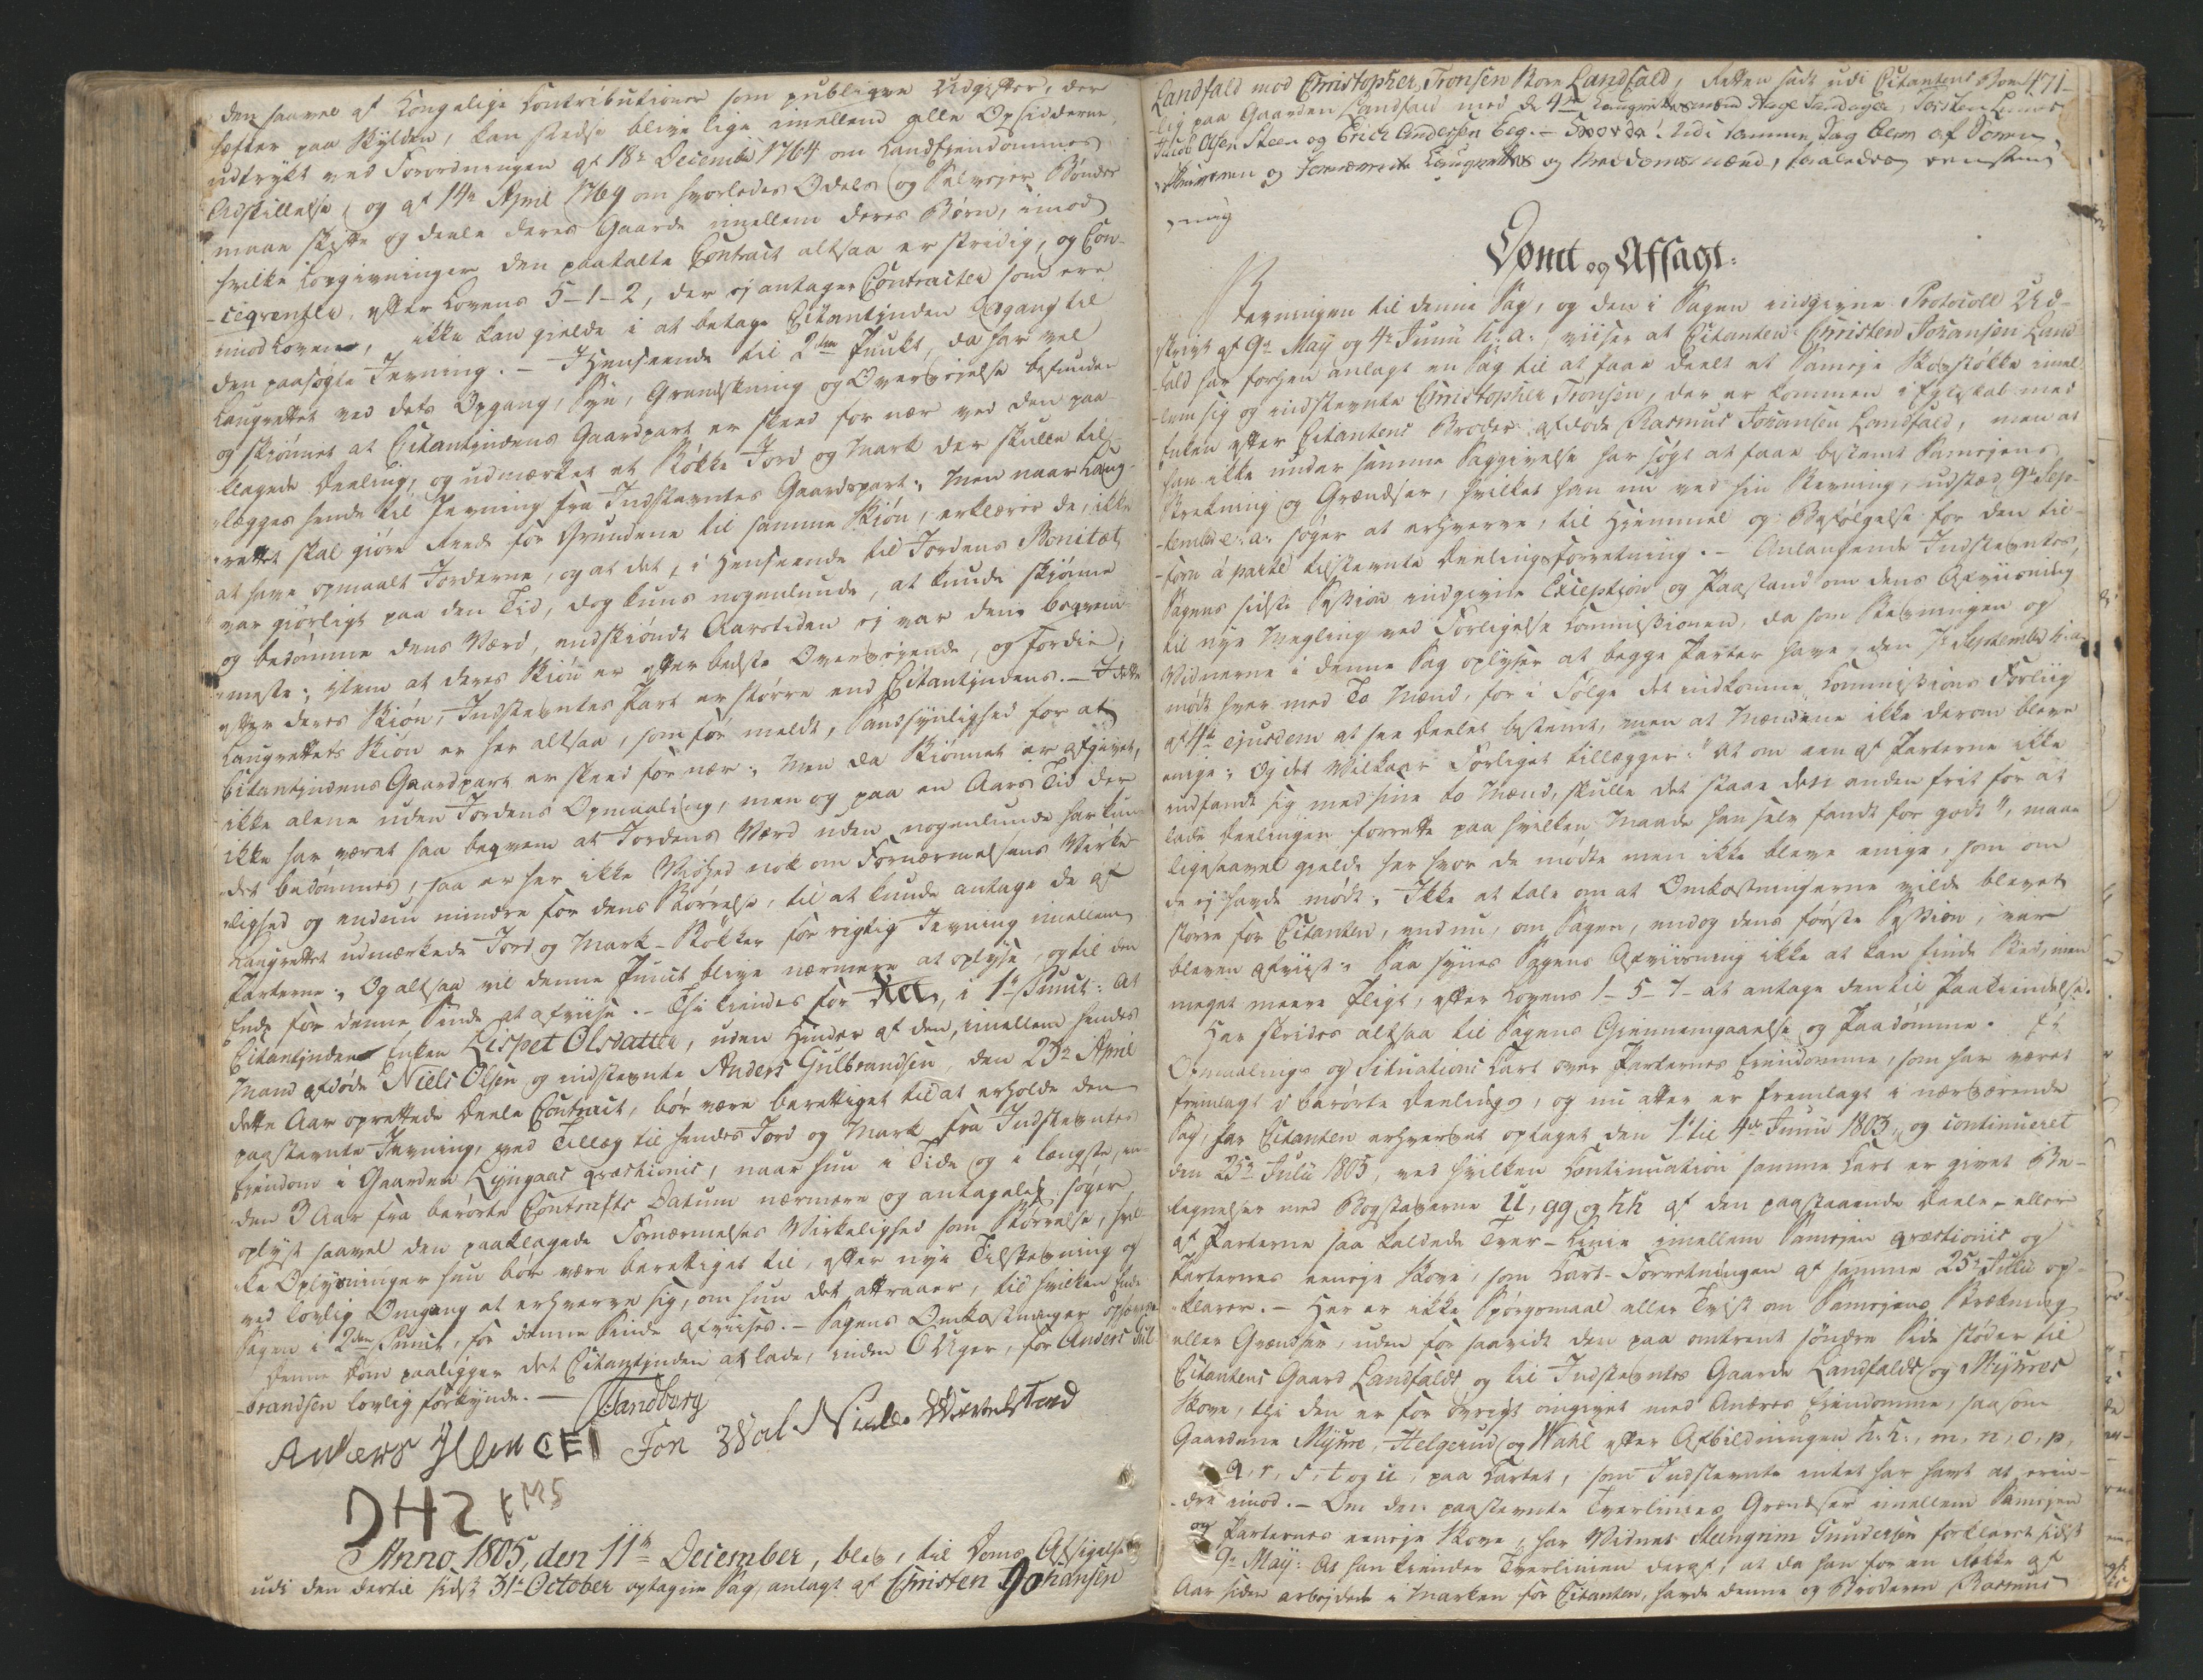 den saavel af Kongelige Contributioner som publiqve Udgifter, der
hefter paa Skylden, kan stedse blive lige imellem alle Opsidderne,
udtrykt ved Forordningen af 18de December 1764 om Landeiendommes
Udskillelse, og af 14de April 1769 om hvorledes Odels og Selveyer Bönder
maae skifte og deele deres Gaarde imellem deres Börn, imod
hvilke Lovgivninger den paatalte Contract altsaa er stridig, og Con-
-seqventer, efter Lovens 5-1-2, der ej antager Contracter som ere
imod Loven, ikke kan gielde i at betage Citantinden Adgang til
den paasögte Jevning. - I Henseende til 2den Punkt, da har vel
Laugrettet ved dets Opgang, Syn, Grandskning og Overvejelse befunden
og skiönnet at Citantindens Gaardpart er skeed for nær ved den paa-
klagede Deeling, og udmærket et Stökke Jord og Mark der skulle til-
-lægges hende til Jevning fra Indstevntes Gaardspart; Men naar Laug-
-rettet skal giöre Rede for Grundene til samme Skiön, erklærer de, ikke
at have opmaalt Jorderne, og at det, i Henseende til Jordens Bonitæt
var giörligt paa den Tid, dog kuns nogenlunde, at kunde skiönne
og bedömme dens Værd, endskiöndt Aarstiden ej var den beqvem-
-meste; item at deres Skiön er efter bedste Overvejende, og fordie,
efter deres Skiön, Indstevntes Part er större end Citantindens. - I dette
Laugrettets Skiön er her altsaa, som för meldt, Sandsynlighed for at
Citantindens Gaardpart er skeed for nær; Men da Skiönnet er afgivet,
ikke alene uden Jordens Opmaaling, men og paa en Aars Tid der
ikke har været saa beqvem at Jordens Værd uden nogenlunde har kun-
-det bedömmes, saa er her ikke Vished nok om Fornærmelsens Virke-
-lighed og endnu mindre for dens Störrelse, til at kunde antage de af
Laugrettet udmærkede Jord og Mark-Stökker for rigtig Jevning imellem
Parterne; Og altsaa vil denne Punct blive nærmere at oplyse, og til den
Ende for denne Sinde at afvise. - Thi kiendes for Ret, i 1te Punct: At
Citantinden Enken Lispet Olsdatter, uden Hinder af den, imellem hendes
Mand afdöde Niels Olsen og indstevnte Anders Gulbrandsen, den 23de April
dette Aar oprettede Deele Contract, bör være berettiget til at erholde den
paastevnte Jevning, ved Tillæg til hendes Jord og Mark fra Indstevntes
Eiendom i Gaarden Lyngaas qvæstionis, naar hun i Tide og i længste, in-
den 3 Aar fra berörte Contracts Datum nærmere og antageligt söger
oplyst saavel den paaklagede Fornærmelses Virkelighed som Störrelse, hvil-
ke Oplysninger hun bör være berettiget til, efter nye Tilstevning og
ved lovlig Omgang at erhverve sig, om hun det attraaer, til hvilken Ende
Sagen i 2den Punct, for denne Sinde afviises. - Sagens Omkostninger ophæves
Denne Dom paaligger det Citantinden at lade, inden 6 Uger, for Anders Gul
-brandsen lovlig forkynde. - Sandberg
Anders
Jon
DHS
Anno 1805, den 11te December, blev, til Doms Afsigelse
udi den dertil sidst 31te October optagne Sag, anlagt af Christen Johansen
471
Landfald mod Christopher Tronsen Store Landfald, Retten sadt udi Citantens Bo-
-lig paa Gaarden Landfald med de 4re Laugrettesmænd
Jacob Olsen Steen og Erich Andersen Eeg. - Hvorda udi samme Sag blev af Soren-
-skriveren og Fornævnte Laugrettes og Meddomsmænd, saaledes eenstem-
-mig
Dömt og Afsagt:
Stevningen til denne Sag, og den i Sagen indgivne Protocoll Ud-
skrivt af 9de May og 4de Junii h: a: viiser at Citanten Christen Johansen Land-
-fald har forhen anlagt en Sag til at faae deelt et Sameje Skovstökke imel-
-lem sig og indstevnte Christopher Tronsen, der er kommen i Egteskab med
Enken efter Citantens Broder afdöde Rasmus Johansen Landfald, men at
han ikke under samme Saggivelse har sögt at faae bestemt Samejens
Strekning og Grændser, hvilket han nu ved sin Stevning, udstæd 9de Sep-
-tember e: a: söger at erhverve, til Hjemmel og Befölgelse for den til-
-forn á parte tilstevnte Deelingsforretning. - Anlangende Indstevntes,
Sagens sidste Session indgivne Exception og Paastand om dens Afviisning
til nye Megling ved Forligelses Commissionen, da som Stevningen og
Vidnerne i denne Sag oplyser at begge Parter have den 7de September h: a:
mödt hver med To Mænd, for i Fölge det indkomne Commissions Forliig
af 4de ejusdem at see Deelet bestemt, men at Mændene ikke derom bleve
enige; Og det Vilkaar Forliget tillægger: "At om een af Parterne ikke
indfandt sig med sine to Mænd, skulle det staae den anden frit for at
lade Deelingen forrette paa hvilken Maade han selv fandt for godt", maae
ligesaavel gielde her hvor de mödte men ikke bleve enige, som om
de ej havde mödt; Ikke at tale om at Omkostningerne vilde blevet
större for Citanten, end nu, om Sagen, endog dens förste Session, var
bleven afviist; Saa synes Sagens Afviisning ikke at kan finde Sted, men
meget meere Pligt, efter Lovens 1-5-7- at antage den til Paakiendelse.
Her skrides altsaa til Sagens Giennemgaaelse og Paadömme. Et
Opmaalings og Situations Cart over Parternes Eiendomme, som har været
fremlagt i berörte Deelings, og nu atter er fremlagt i nærværende
Sag, har Citanten erhvervet optaget den 1te til 4de Junii 1803, og continueret
den 25de Julii 1805, ved hvilken Continuation samme Cart er givet Be-
tegnelser med Bogstaverne U, gg og hh af den paastaaende Deele- eller
af Parterne saa kaldede Tver-Linie imellem Samejen qvæstionis og
Parternes eeneje Skove, som Cart-Forretningen af samme 25de Julii op-
-klarer. - Her er ikke Spörgsmaal eller Tvist om Samejens Strekning
eller Grændser, uden for saavidt den paa omtrent söndre Side stöder til
Citantens Gaard Landfalds og til Indstevntes Gaarde Landfalds og Myhres
Skove, thi den er for övrigt omgivet med Andres Eiendomme, saasom
Gaardene Myhre, Helgerud og Wahl efter Afbildningen h. h:, m, n, o, p,
q, r, s, t og u, paa Cartet, som Indstevnte intet har havt at erin-
-dre imod. - Om den paastevnte Tverlinies Grændser imellem Samejen
og Parternes eeneje Skove, har Vidnet Steengrim Gundersen forklaret sidst
9de May: At han kiender Tverlinien deraf, at da han for en Rekke af
Aar siden arbejdede i Marken for Citanten, havde denne og Broderen Rasmus